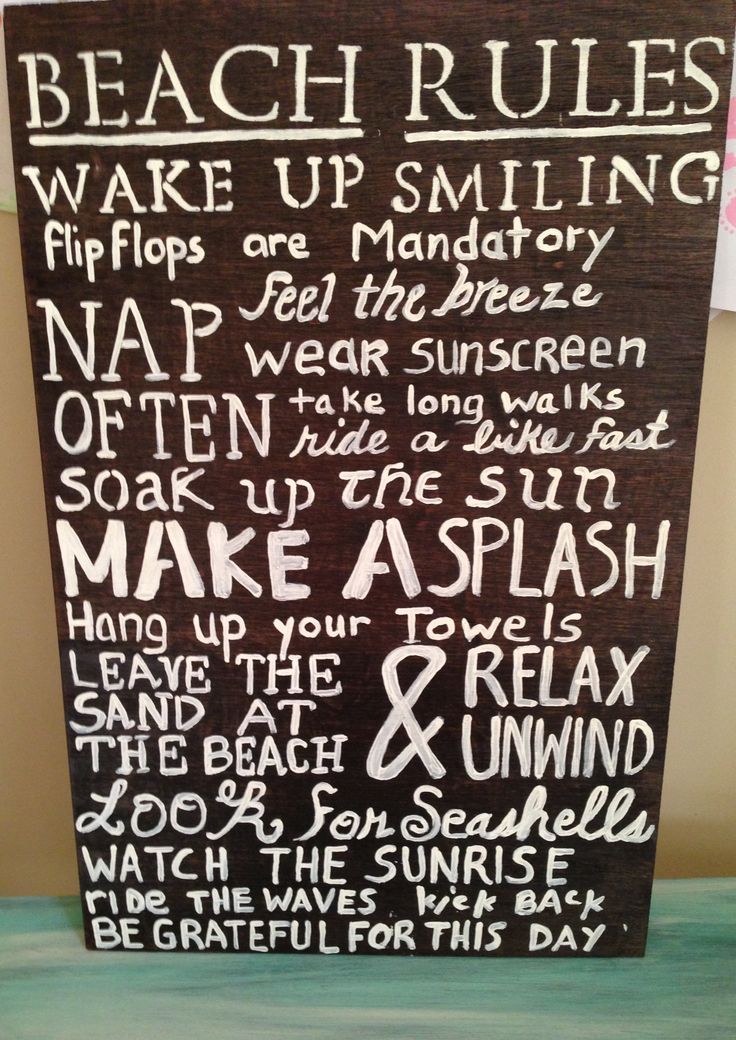 BEACH RULES
WAKE UP SMILING
flip flops are Mandatory
NAP OFTEN
feel the breeze
wear sunscreen
take long walks
ride a bike fast
soak up the sun
MAKE A SPLASH
Hang up your Towels
LEAVE THE
SAND AT
THE BEACH
& RELAX
UNWIND
Look for Seashells
WATCH THE SUNRISE
ride THE WAVES kick BACK
BE GRATEFUL FOR THIS DAY